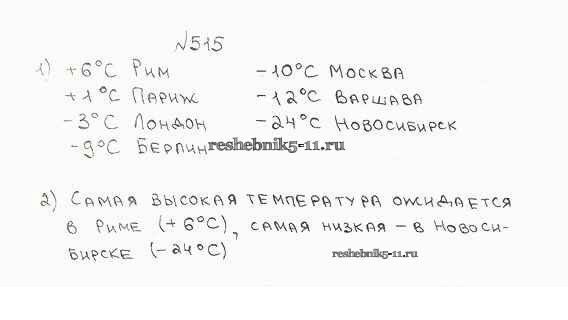 №515
1) +6°C Рим -10°C Москва
+1°C Париж -12°C Варшава
-3°C Лондон -24°C Новосибирск
-9°C Берлин reshebnik5-11.ru
2) Самая высокая температура ожидается
в Риме (+6°C), самая низкая - в Новоси-
бирске (-24°C) reshebnik5-11.ru